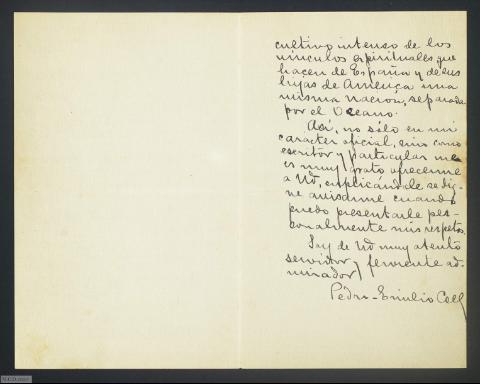 cultivo intenso de los
vínculos espirituales que
hacen de España y de sus
hijas de América una
misma nación, separada
por el Océano.
Así, no sólo en mi
carácter oficial, sino como
escritor y particular me
es muy grato ofrecerme
a Ud, suplicándole se dig-
ne avisarme cuando
puedo presentarle per-
sonalmente mis respetos.
Soy de Ud muy atento
servidor y ferviente ad-
mirador
Pedro-Emilio Coll